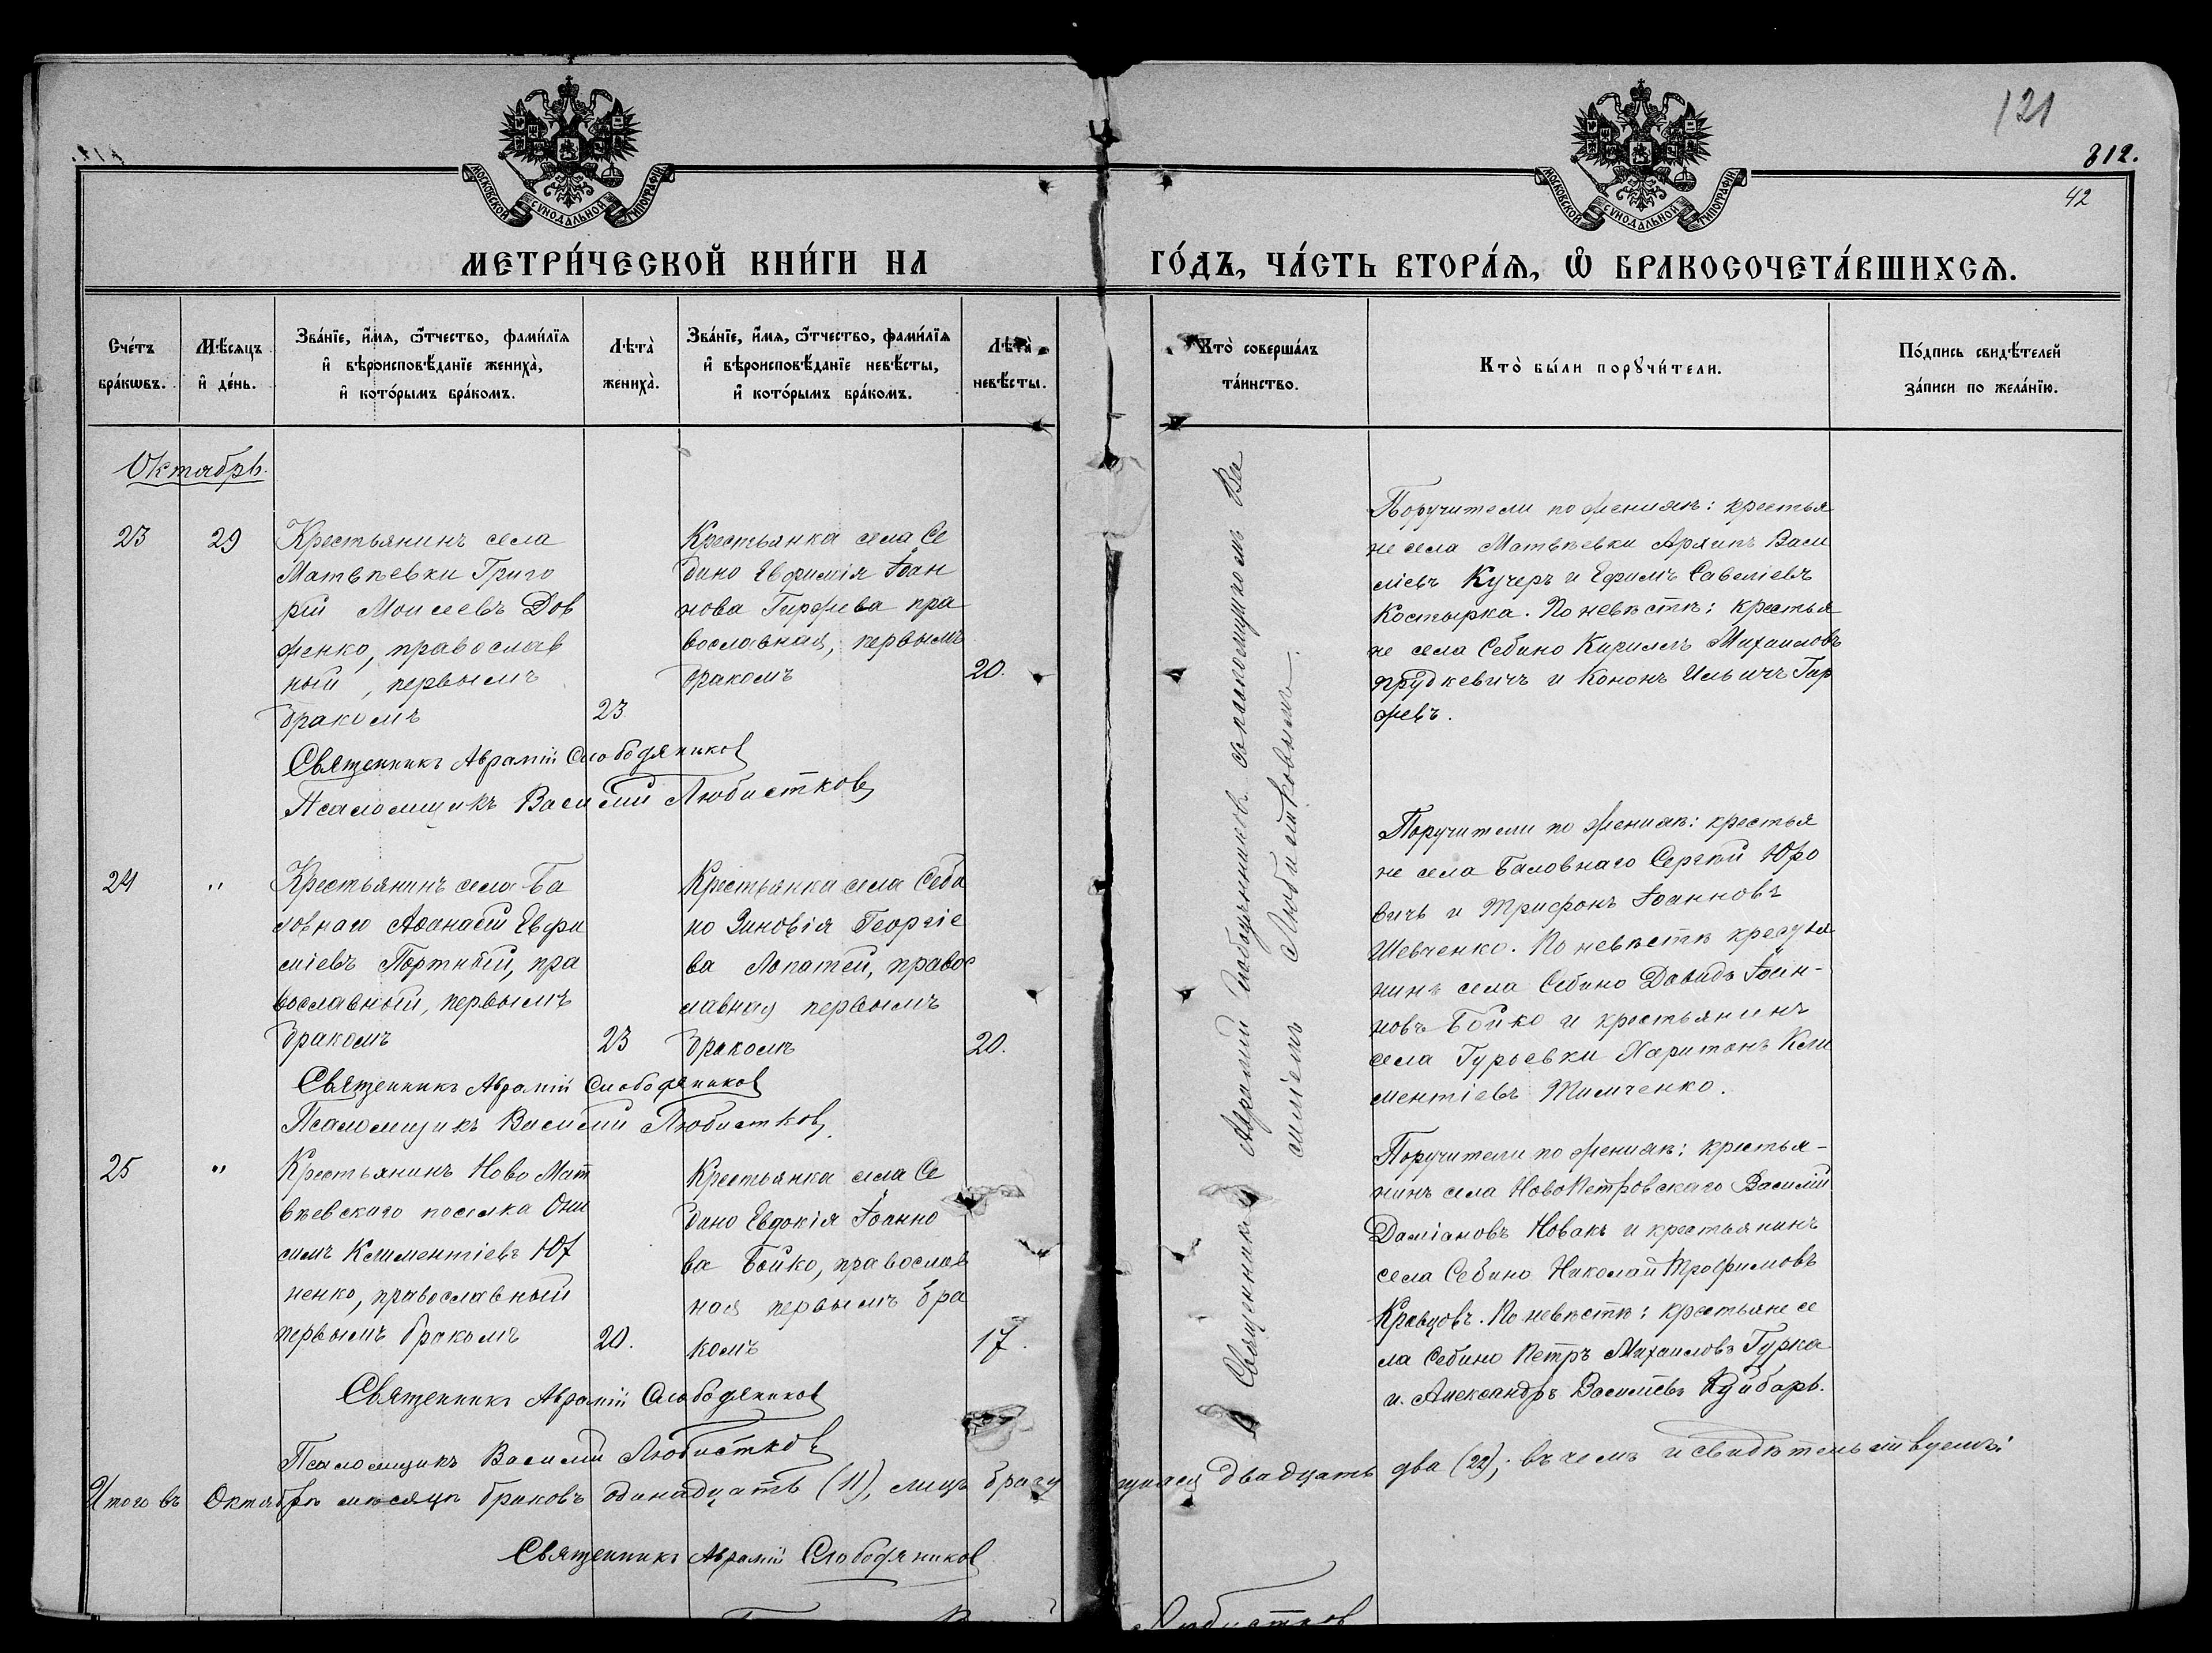 121
812.
42
МОСКОВСКОЙ СѴНОДАЛЬНОЙ ТИПОГРАФІИ
МОСКОВСКОЙ СѴНОДАЛЬНОЙ ТИПОГРАФІИ
МЕТРИ́ЧЕСКОЙ КНИ́ГИ НА
ГО́ДЪ, ЧА́СТЬ ВТОРА́Ѧ, Ѽ БРАКОСОЧЕТА́ВШИХСѦ.
Сче́тъ
бра́кѡвъ.
Мѣ́сяцъ
и҆ де́нь.
Зва́нїе, и҆́мѧ, ѻ҆́тчество, фами́лїѧ
и҆ вѣроисповѣ́данїе жениха̀,
и҆ кото́рымъ бра́комъ.
Лѣта̀
жениха̀.
Зва́нїе, и҆́мѧ, ѻ҆́тчество, фами́лїѧ
и҆ вѣроисповѣ́данїе невѣ́сты,
и҆ кото́рымъ бра́комъ.
Лѣта̀
невѣ́сты.
Кто̀ соверша́лъ
та́инство.
Кто̀ бы́ли порꙋчи́тели.
По́дпись свидѣ́телей
за́писи по жела́нїю.
Октябрь.
23
29
Крестьянинъ села
Матвѣевки Григо
рій Моисеевъ Дов
женко, православ
ный, первымъ
бракомъ
23
Крестьянка села Се
бино Евфимія Іоан
нова Гиржева пра
вославная, первымъ
бракомъ
20.
Поручители по женихѣ: крестья
не села Матвѣевки Архипъ Васи
ліевъ Кучеръ и Ефимъ Савеліевъ
Костырка. По невѣстѣ: крестья
не села Себино Кириллъ Михаиловъ
Прудкевичъ и Кононъ Ильичъ Гир
жевъ.
Священникъ Аврамій Слободяников
Псаломщикъ Василий Любистков
24
"
Крестьянинъ села Ба
ловнаго Аѳанасій Евфи
міевъ Портный, пра
вославный, первымъ
бракомъ
23
Крестьянка села Себи
но Зиновія Георгіе
ва Лопатей, правос
лавная первымъ
бракомъ
20.
Поручители по женихѣ: крестья
не села Баловнаго Сергѣй Юро
вичъ и Трифонъ Іоанновъ
Шевченко. По невѣстѣ крестья
нинъ села Себино Давидъ Іоан-
новъ Бойко и крестьянинъ
села Гурьевки Харитонъ Кли
ментіевъ Тимченко.
Священникъ Аврамій Слободяников
Псаломщикъ Василий Любистков
25
"
Крестьянинъ Ново Мат
вѣевскаго поселка Они
симъ Климентіевъ Юх
ненко, православный
первымъ бракомъ
20.
Крестьянка села Се
бино Евдокія Іоанно
ва Бойко, православ
ная первымъ бра
комъ
17.
Поручители по женихѣ: крестья-
нинъ села НовоПетровскаго Василій
Даміановъ Новакъ и крестьянинъ
села Себино Николай Трофимовъ
Кравцовъ. По невѣстѣ: крестьяне се
ла Себино Петръ Михаиловъ Гурка
и Александръ Василіевъ Куйбарь.
Священникъ Аврамій Слободяников
Псаломщикъ Василий Любистков
Священникъ Аврамій Слободянниковъ съ псаломщикомъ Ва
силіемъ Любистковымъ.
Итого въ Октябрѣ мѣсяцѣ браковъ одинадцать (11), лицъ двадцать два (22); въ чемъ и свидѣтельствуемъ:
Священникъ Аврамій Слободяников
Любистков